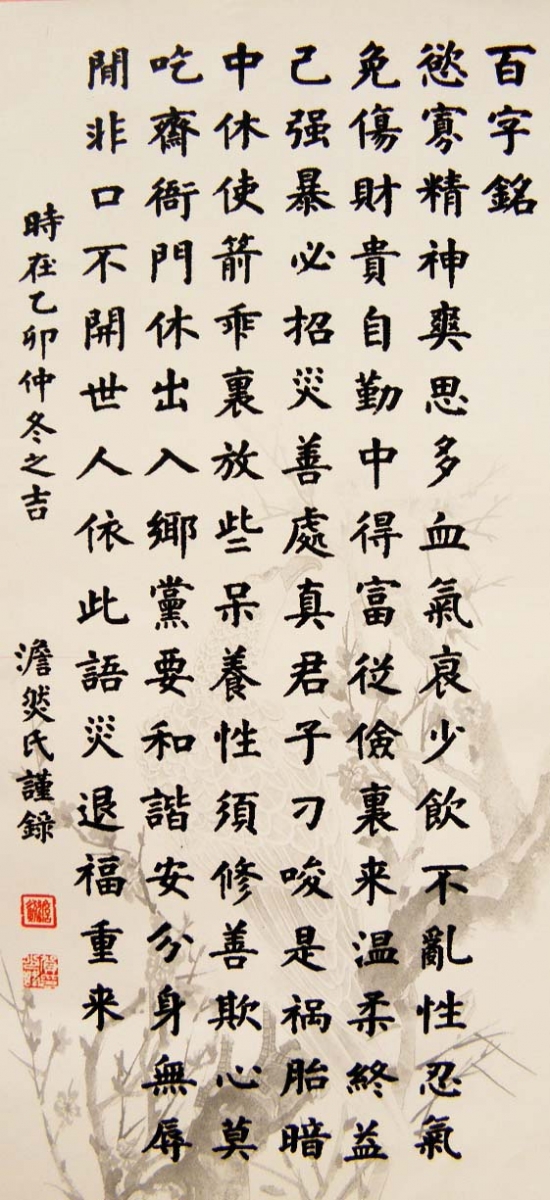 百字銘
慾寡精神爽思多血氣衰少飲不亂性忍氣
免傷財貴自勤中得富從儉裏来温柔終益
己强暴必招災善處真君子刁唆是祸胎暗
中休使箭乖裏放些呆養性須修善欺心莫
吃齋衙門休出入鄉黨要和諧安分身無辱
閒非口不開世人依此語災退福重来
時在乙卯仲冬之吉 澹然氏謹錄